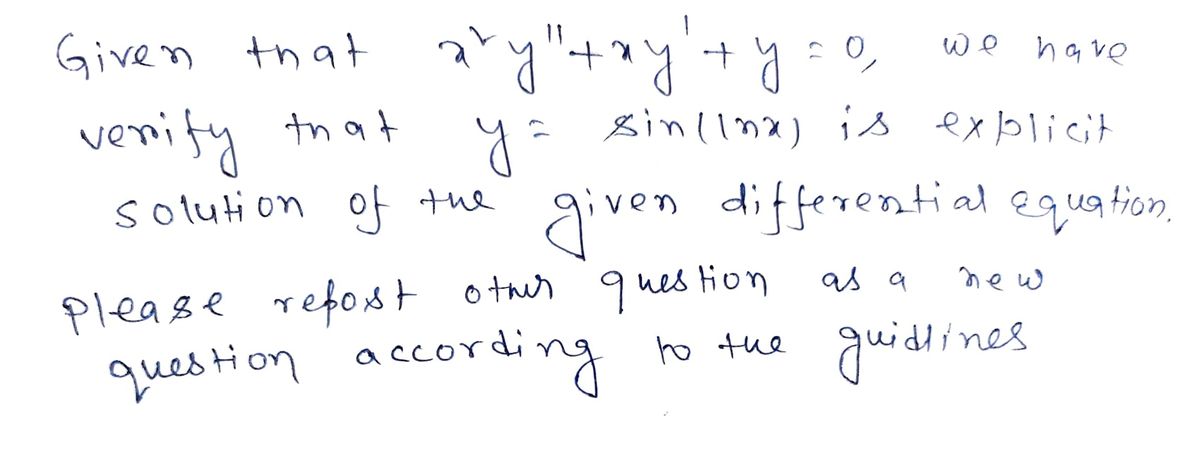 Given that x²y"+xy'+y=0, we have
verify that y= sin(lnx) is explicit
solution of the given differential equation.
please repost other question as a new
question according to the guidlines